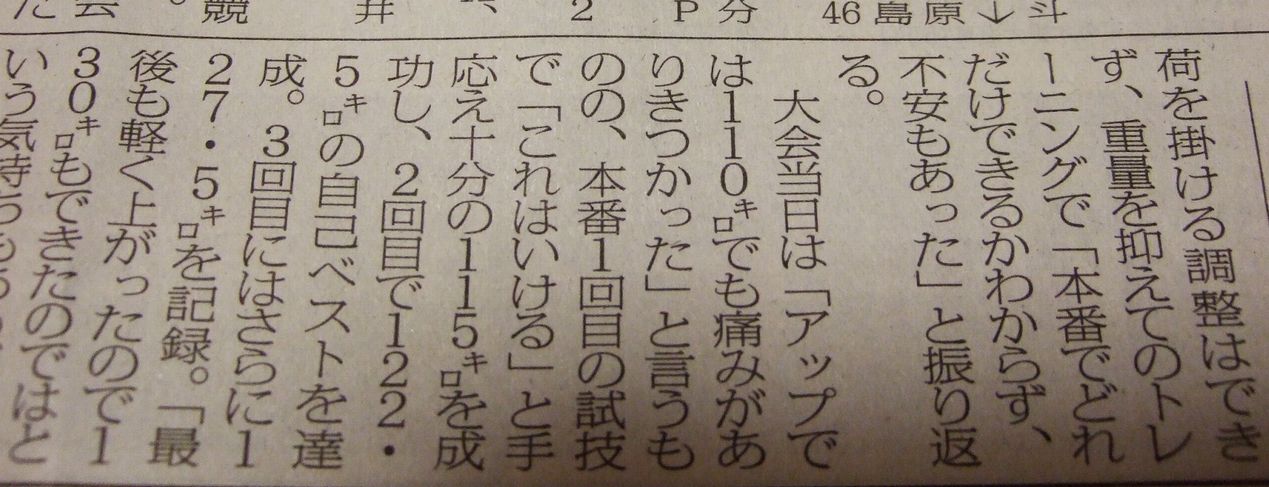 荷を掛ける調整はでき
ず、重量を抑えてのトレ
ーニングで「本番でどれ
だけできるかわからず、
不安もあった」と振り返
る。
大会当日は「アップで
は110㌔でも痛みがあ
りきつかった」と言うも
のの、本番1回目の試技
で「これはいける」と手
応え十分の115㌔を成
功し、2回目で122・
5㌔の自己ベストを達
成。3回目にはさらに1
27・5㌔を記録。「最
後も軽く上がったので1
30㌔もできたのではと
いう気持ちも